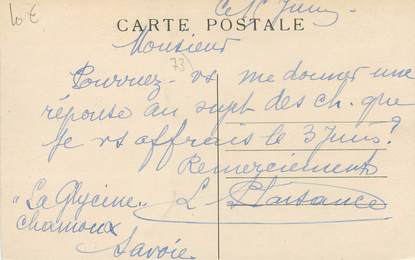 10€
Ce 15 Juin
CARTE POSTALE
Monsieur
73
Pourriez-vs me donner une
réponse au sujet des ch. que
je vs offrais le 3 Juin?
Remerciements
"La Glycine"
L. Plaisance
Chamoux
Savoie.